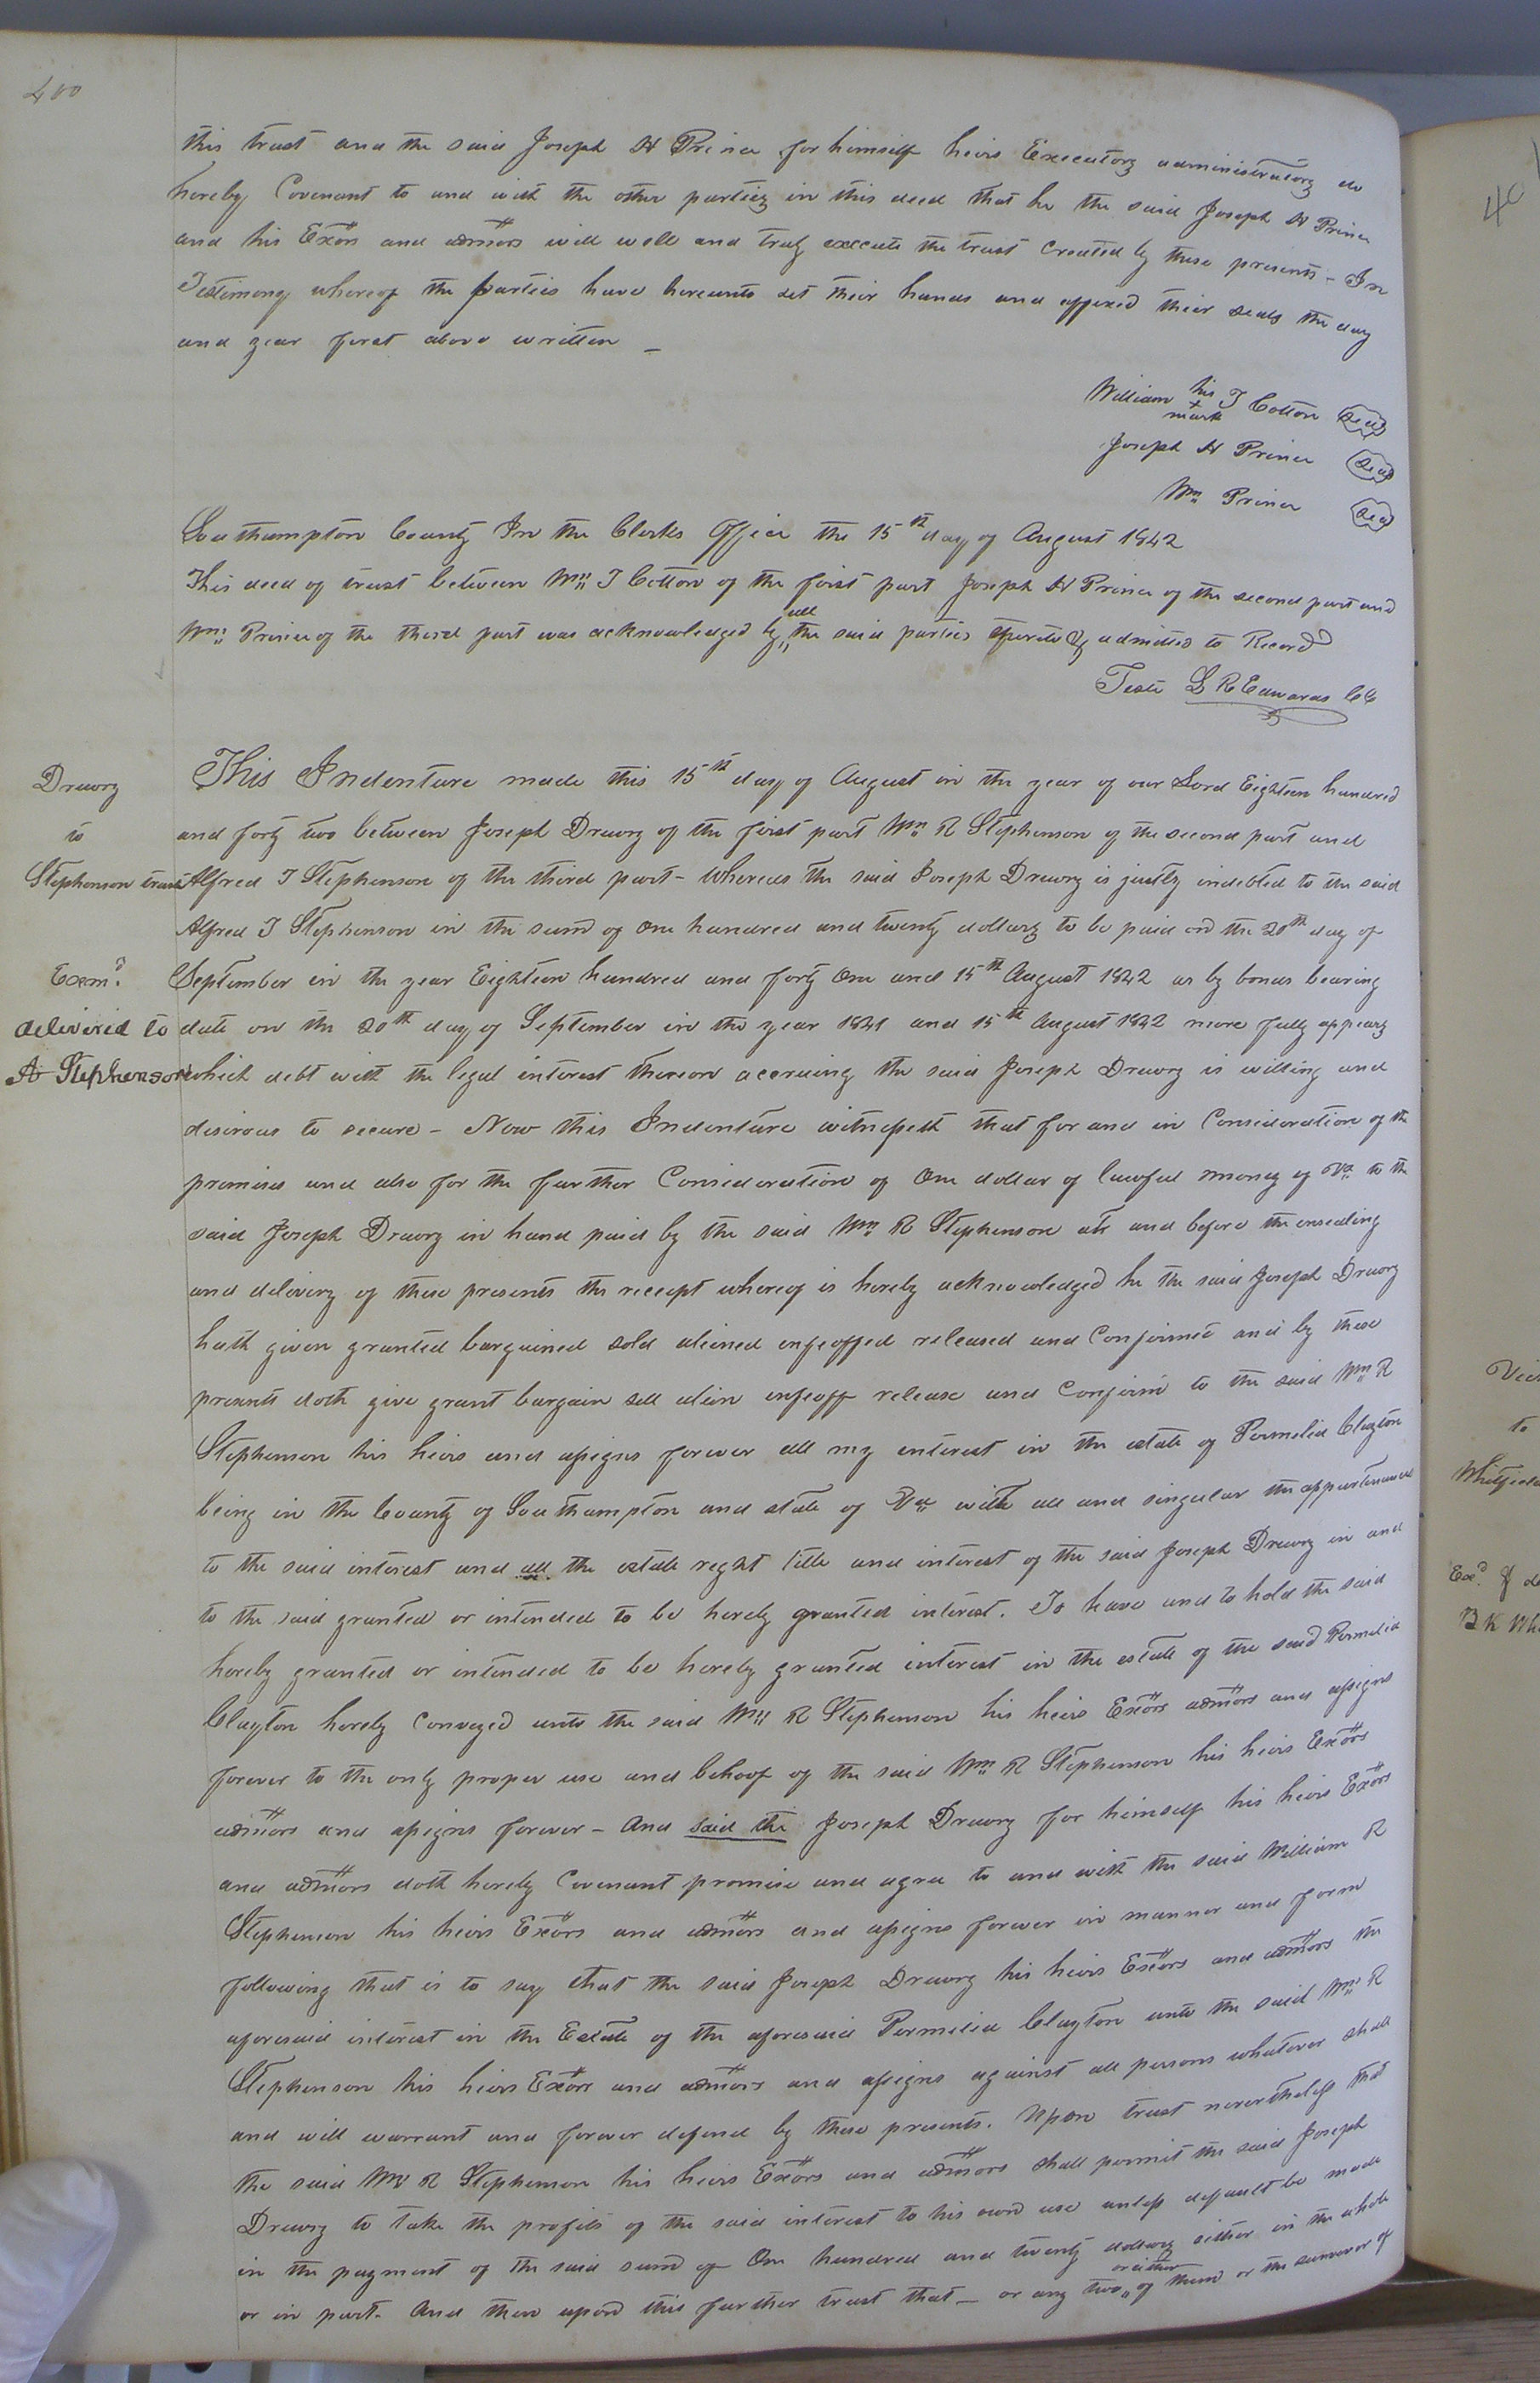 400
this trust and the said Joseph H Prince for himself heirs Executors administrators do
hereby Covenant to and with the other parties in this deed that he the said Joseph H Prince
and his Exors and admors will well and truly execute the trust created by these presents – In
Testimony whereof the parties have hereunto set their hands and affixed their seals the day
and year first above written –
William his T Cotton Seal
+
mark
Joseph H Prince Seal
Wm Prince Seal
Southampton County In the Clerks Office the 15th day of August 1842
This deed of trust between Wm T Cotton of the first part Joseph H Prince of the second part and
all
Wm Prince of the third part was acknowledged by the said parties thereto & admitted to Record
Teste L R Edwards CC
Drewry
to
Stephenson trust
Exmd
delivered to
A Stephenson
This Indenture made this 15th day of August in the year of our Lord Eighteen hundred
and forty two between Joseph Drewry of the first part Wm R Stephenson of the second part and
Alfred J Stephenson of the third part – Whereas the said Joseph Drewry is justly indebted to the said
Alfred J Stephenson in the sum of One hundred and twenty dollars to be paid on the 20th day of
September in the year Eighteen hundred and forty One and 15th August 1842 as by bonds bearing
date on the 20th day of September in the year 1841 and 15th August 1842 more fully appears
which debt with the legal interest thereon accruing the said Joseph Drewry is willing and
desirous to secure – Now this Indenture witnesseth that for and in Consideration of the
premises and also for the further Consideration of One dollar of lawful money of Va to the
said Joseph Drewry in hand paid by the said Wm R Stephenson at and before the ensealing
and delivery of these presents the receipt whereof is hereby acknowledged he the said Joseph Drewry
hath given granted bargained sold aliened enfeoffed released and Confirmed and by these
presents doth give grant bargain sell alien enfeoff release and Confirm to the said Wm R
Stephenson his heirs and assigns forever all my interest in the estate of Permelia Clayton
being in the County of Southampton and state of Va with all and singular the appurtenances
to the said interest and all the estate right title and interest of the said Joseph Drewry in and
to the said granted or intended to be hereby granted interest. To have and to hold the said
hereby granted or intended to be hereby granted interest in the estate of the said Permelia
Clayton hereby Conveyed unto the said Wm R Stephenson his heirs Exors admors and assigns
forever to the only proper use and behoof of the said Wm R Stephenson his heirs Exors
admors and assigns forever – And said the Joseph Drewry for himself his heirs Exors
and admors doth hereby Covenant promise and agree to and with the said William R
Stephenson his heirs Exors and admors and assigns forever in manner and form
following that is to say that the said Joseph Drewry his heirs Exors and admors the
aforesaid interest in the Estate of the aforesaid Permelia Clayton unto the said Wm R
Stephenson his heirs Exors and admors and assigns against all persons whatever shall
and will warrant and forever defend by these presents. Upon trust nevertheless that
the said Wm R Stephenson his heirs Exors and admors shall permit the said Joseph
Drewry to take the profits of the said interest to his own use unless default be made
in the payment of the said sum of One hundred and twenty dollars either in the whole
or either
or in part. And then upon this further trust that – or any two of them or the survivor of
401
to